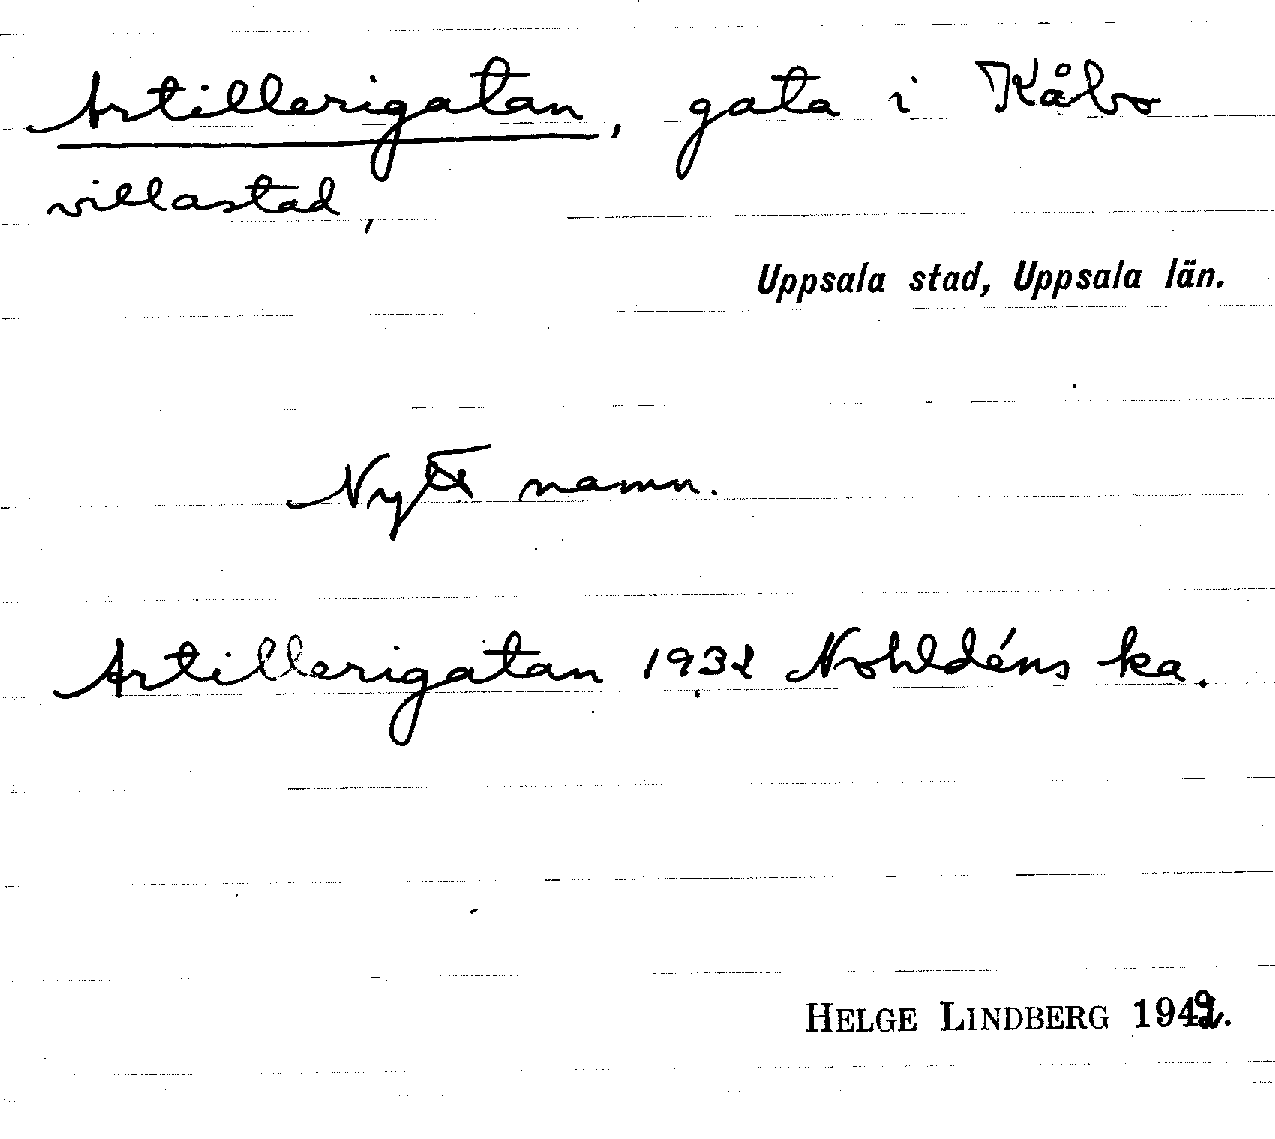 Artillerigatan, gata i Kåbo
villastad,
Uppsala stad, Uppsala län.
Nytt namn.
Artillerigatan 1932 Nohldéns ka.
HELGE LINDBERG 1942.